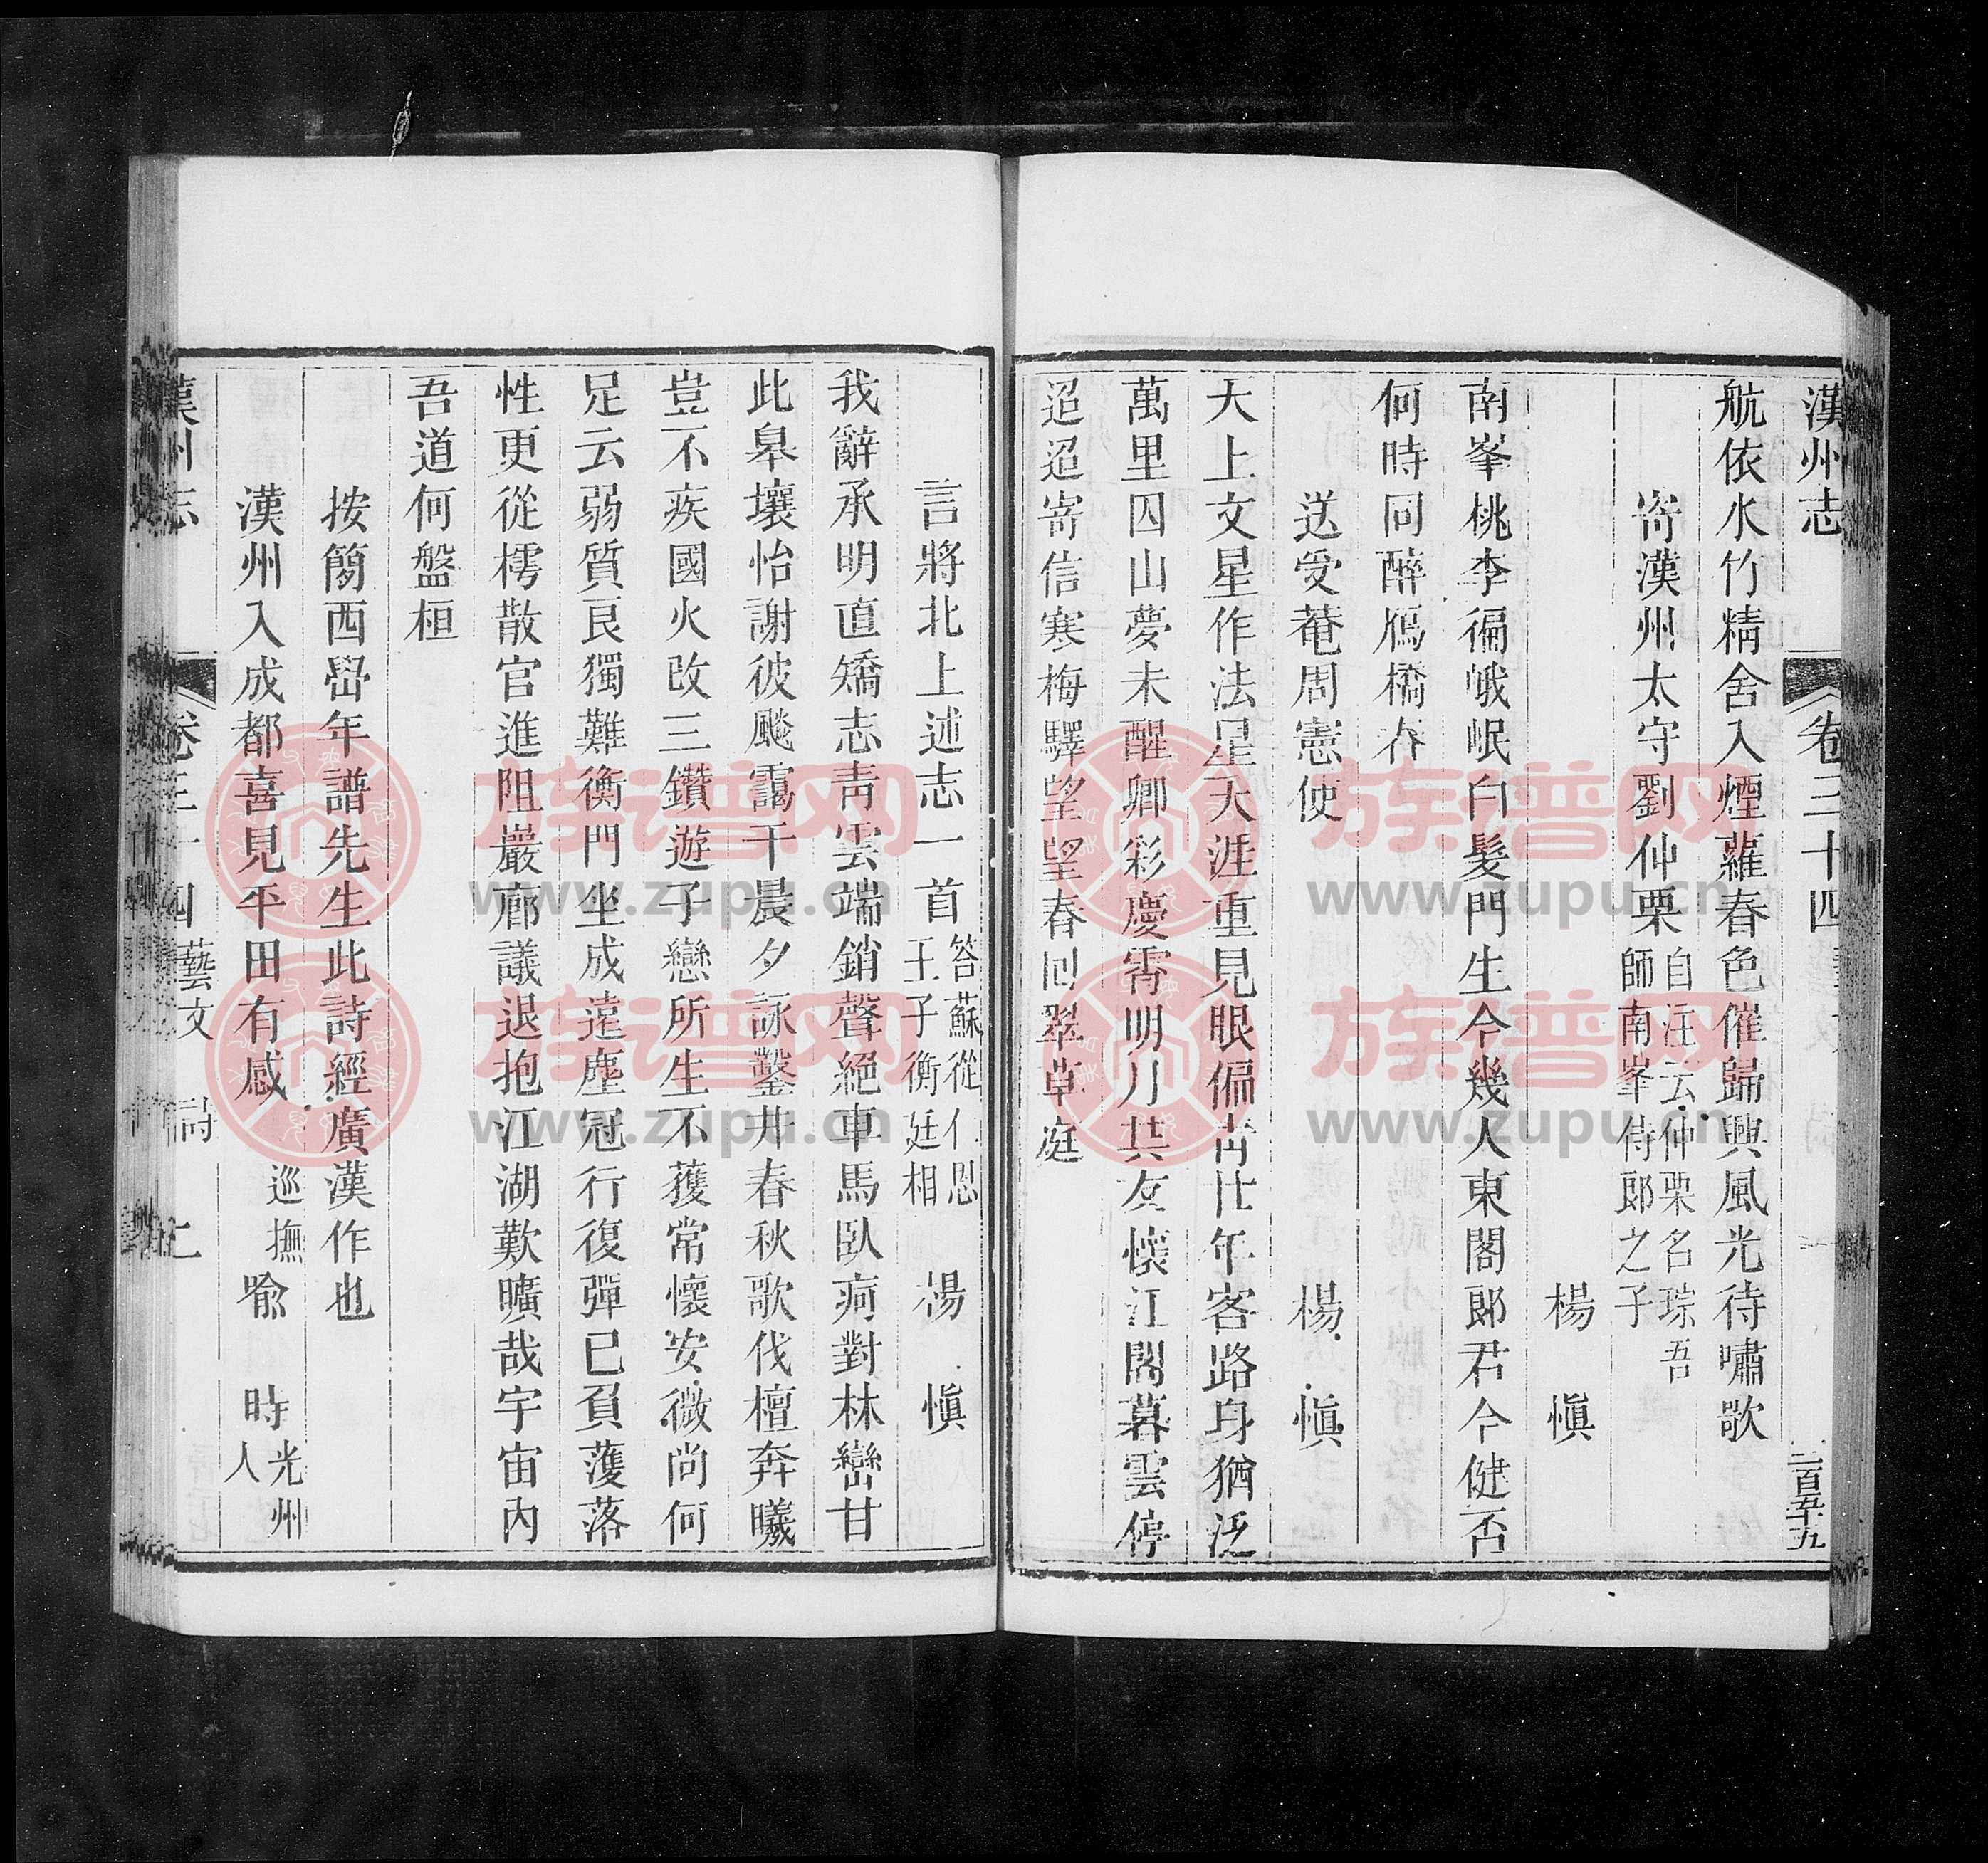 漢州志 卷三十四 二百五十五
航依水竹精舍入煙蘿春色催歸興風光待嘯歌
寄漢州太守劉仲栗自注云仲栗名琮吾師南峯侍郎之子
楊慎
南峯桃李徧峨岷白髮門生今幾人東閣郎君今健否
何時同醉鴈橋春
送受菴周憲使 楊慎
天上文星作法星天涯重見眼偏青廿年客路身猶泛
萬里囚山夢未醒卿彩慶霄明月共友懷江閣暮雲停
迢迢寄信寒梅驛望望春回翠草庭
言將北上述志一首答蘇從仁恩王子衡廷相 楊慎
我辭承明直矯志青雲端銷聲絕車馬臥痾對林巒甘
此皋壤怡謝彼颷靄干晨夕詠鑿井春秋歌伐檀奔曦
豈不疾國火改三鑽遊子戀所生不獲常懷安微尚何
足云弱質良獨難衡門坐成遠塵冠行復彈巳負蓬落
性更從樗散官進阻巖廊議退抱江湖歎曠哉宇宙內
吾道何盤桓
按簡西嵒年譜先生此詩經廣漢作也
漢州入成都喜見平田有感 巡撫 喩時 光州人
漢州志 卷三十四 藝文 詩 上
族谱网
www.zupu.cn
族谱网
www.zupu.cn
族谱网
www.zupu.cn
族谱网
www.zupu.cn